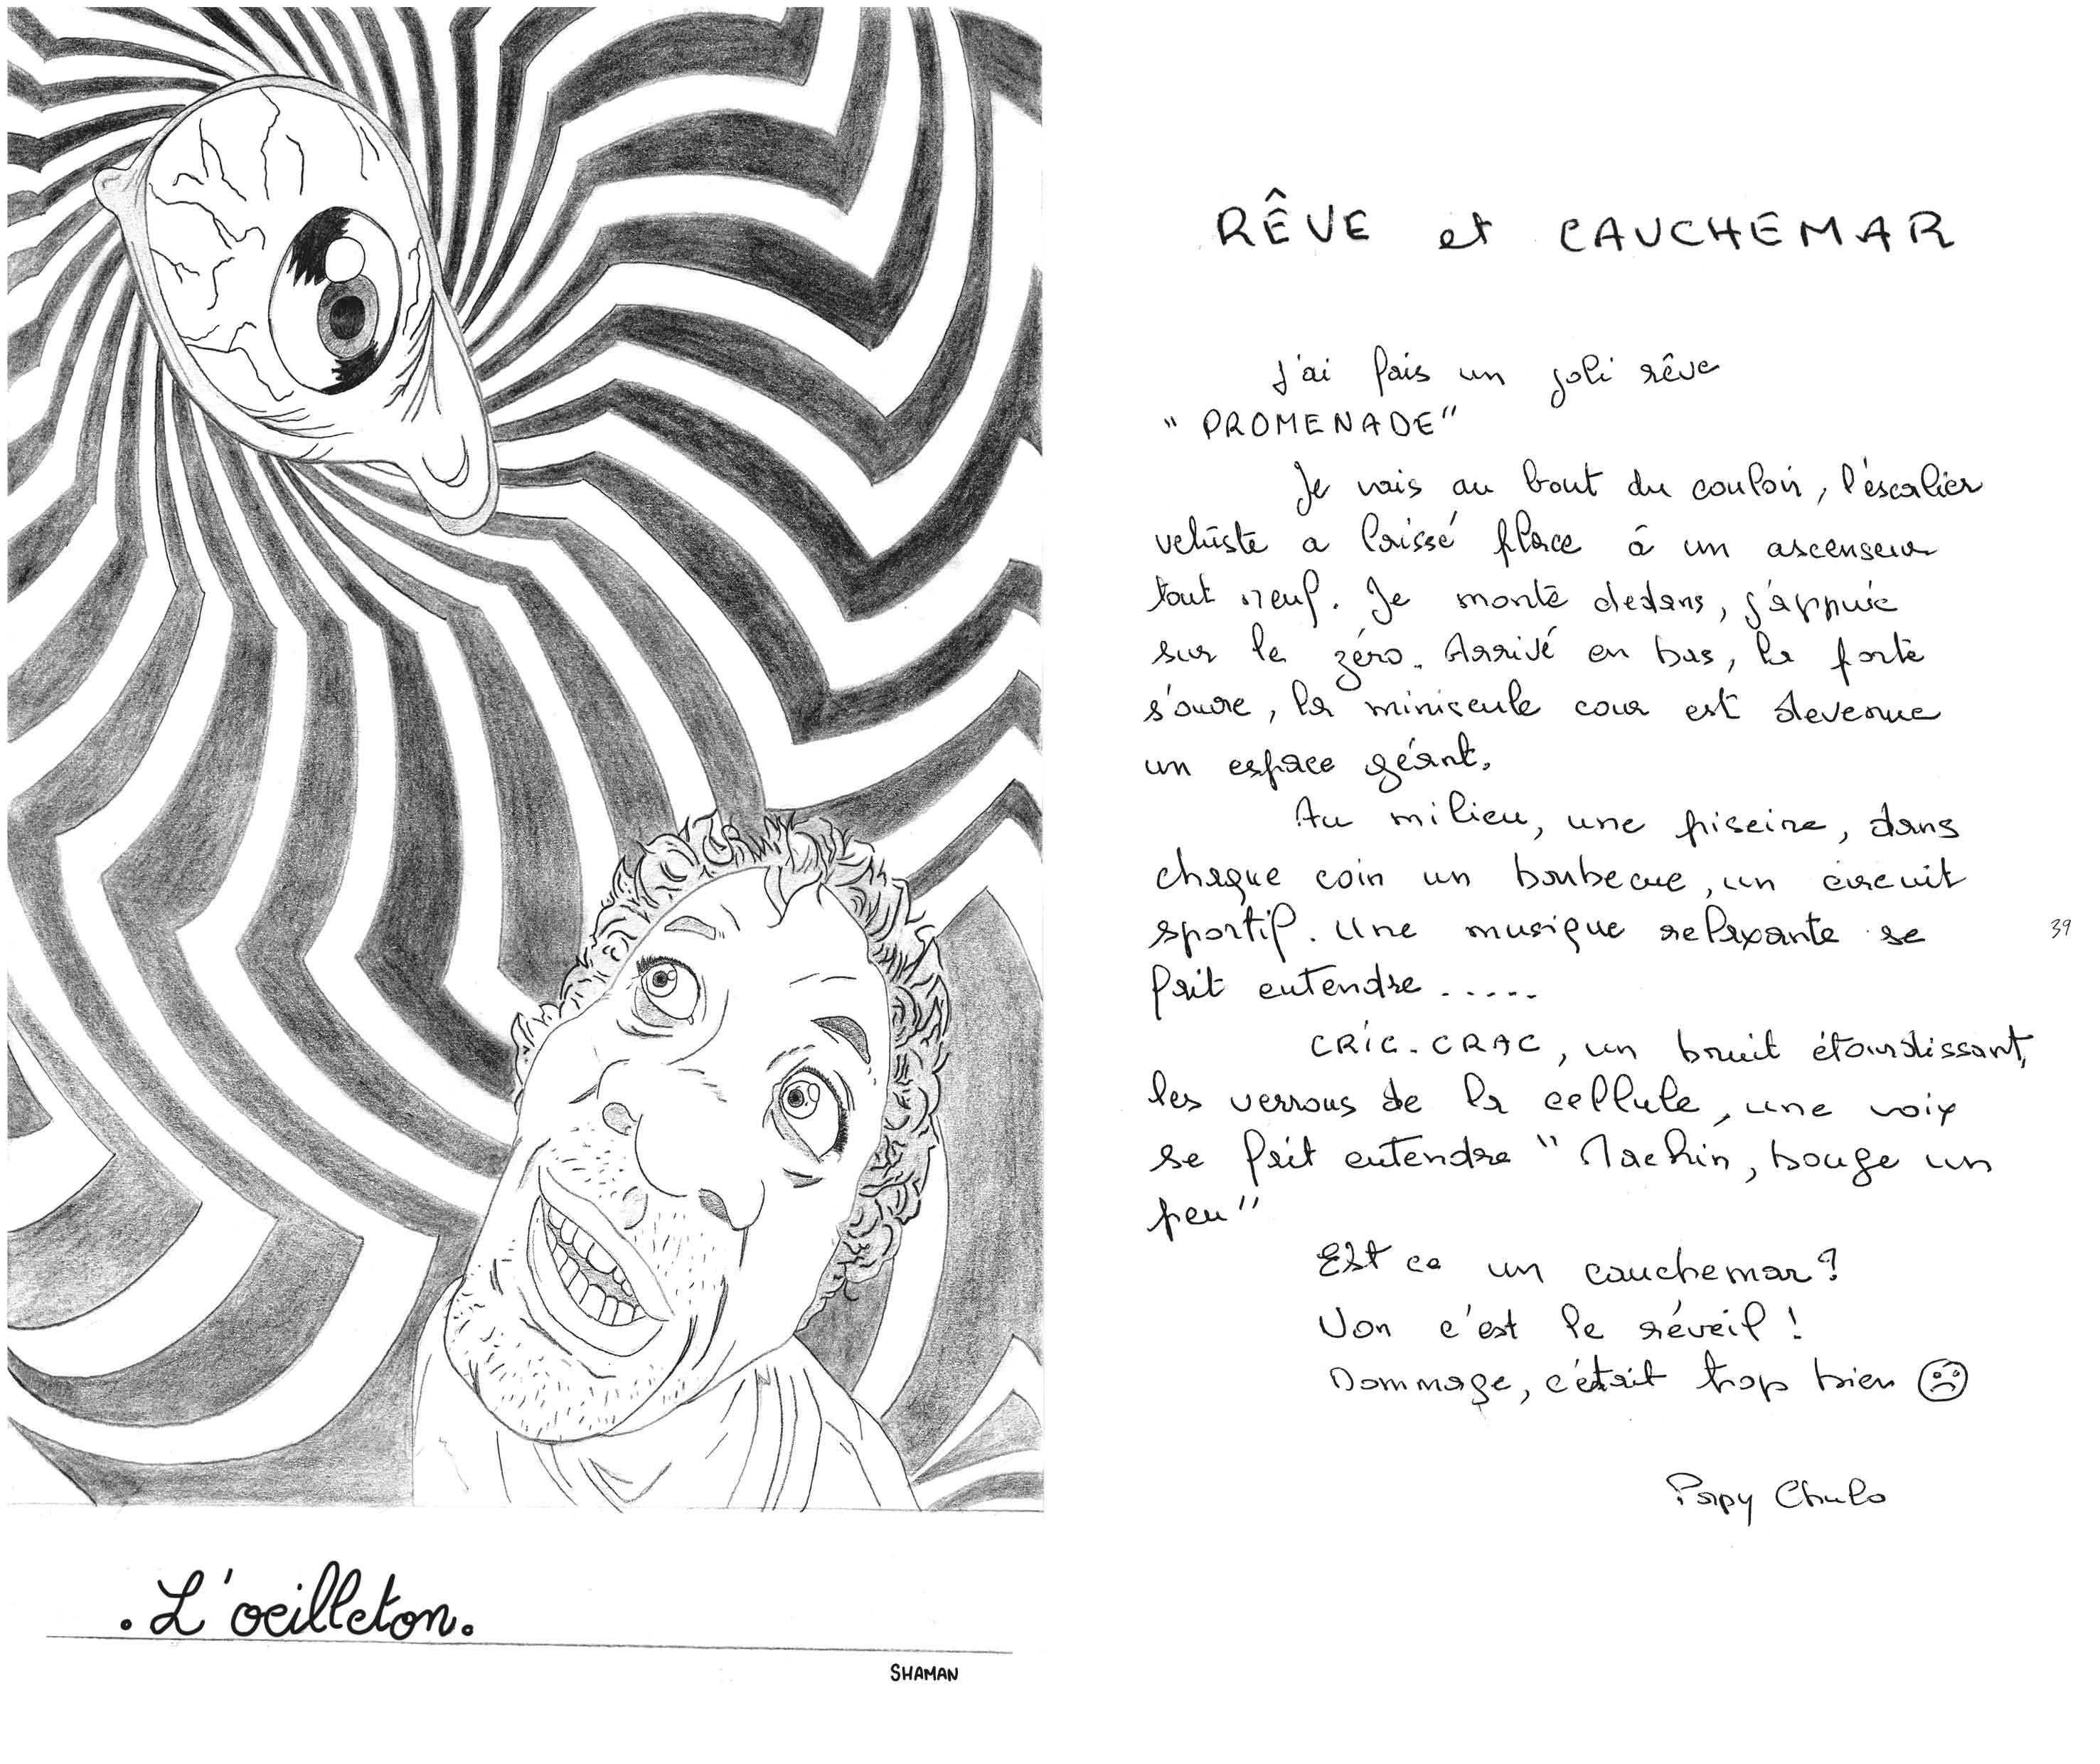 .L'oeilleton.
SHAMAN
RÊVE et CAUCHEMAR
J'ai fais un joli rêve
"PROMENADE"
Je vais au bout du couloir, l'éscalier
vetuste a laissé place à un ascenseur
tout neuf. Je monte dedans, j'appuie
sur le zéro. Arrivé en bas, la porte
s'ouvre, la miniscule cour est devenue
un espace géant.
Au milieu, une piscine, dans
chaque coin un barbecue, un circuit
sportif. Une musique relaxante se
fait entendre .....
CRIC-CRAC, un bruit étourdissant,
les verrous de la cellule, une voix
se fait entendre "Machin, bouge un
peu"
Est ce un cauchemar?
Non c'est le réveil!
Dommage, c'était trop bien ☹
Papy Chulo
39